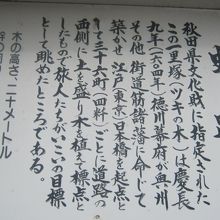 秋田県文化財に指定された
この一里塚（ツキの木）は慶長
九年（一六〇四年）徳川幕府が奥州
その他 街道筋諸藩に命じて
築かせ 江戸（東京）日本橋を起点と
して三十六町（四粁）ごとに道路の
西側に土を盛り木を植えて標点と
したもので旅人たちがこの目標
として眺めたところである。
木の高さ、二十メートル
幹の周り